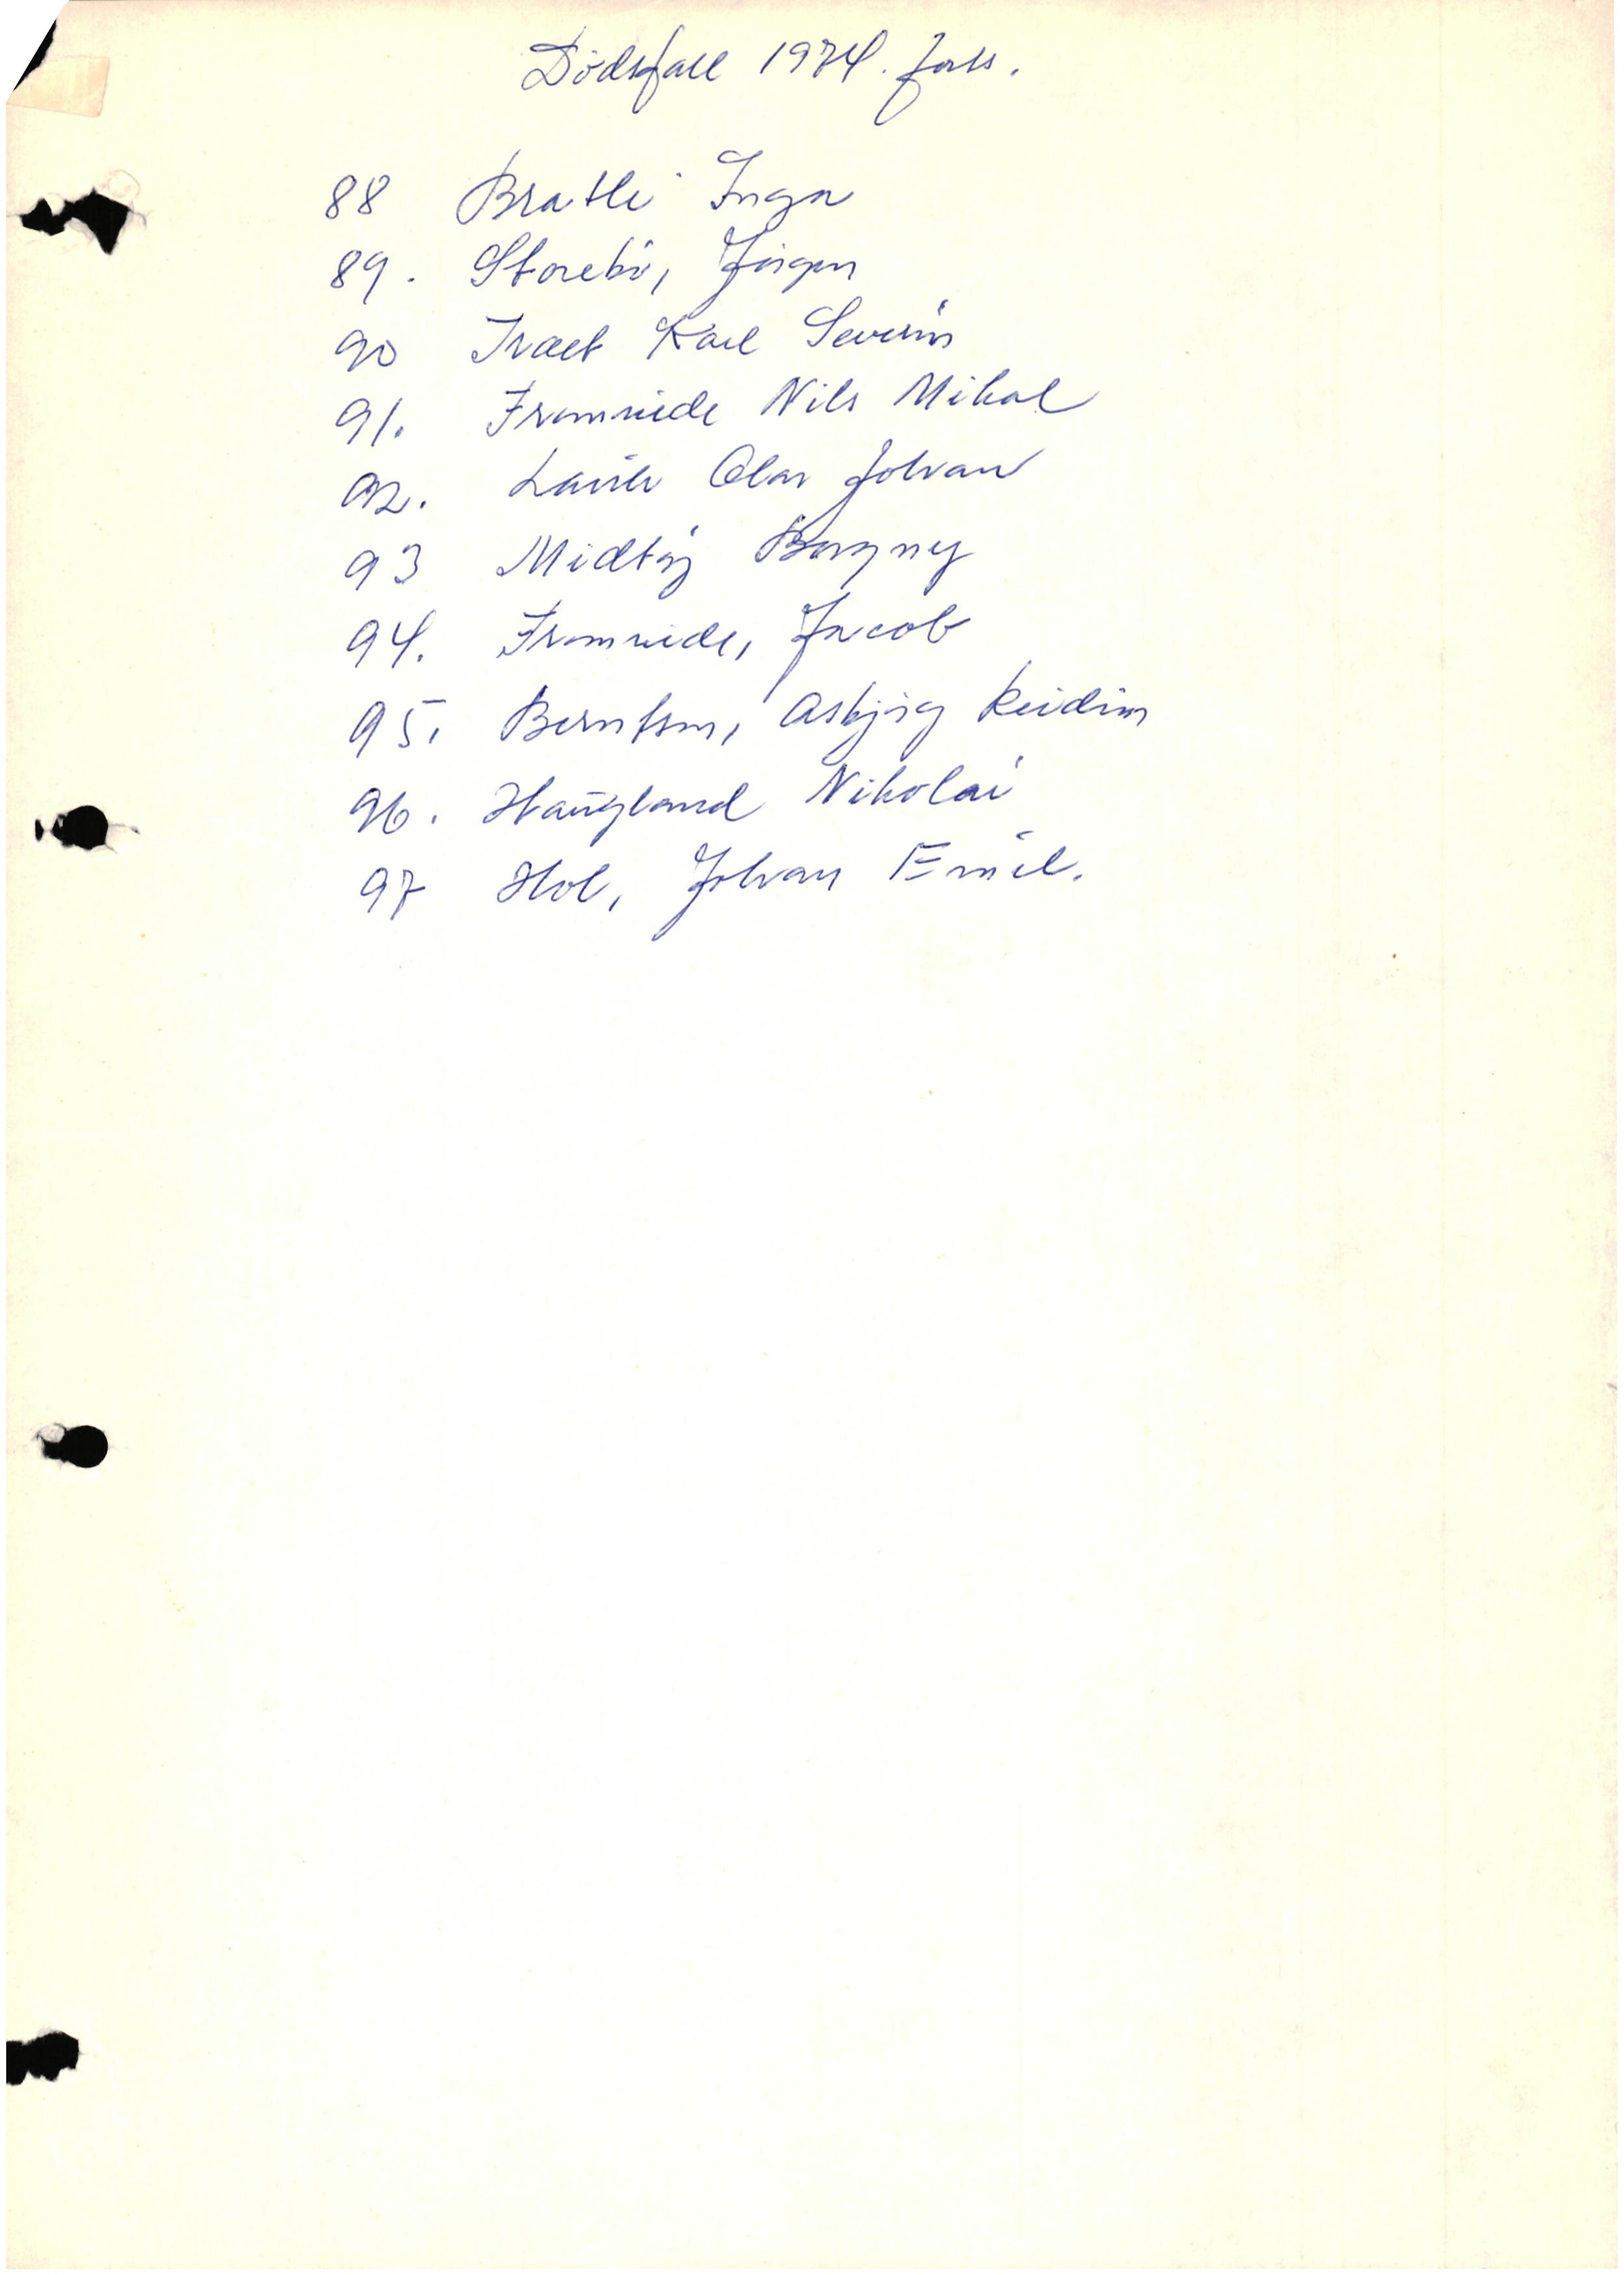 Dødsfall 1974. forts.
88 Bratli Inga
89. Storebø, Jørgen
90 Træet Karl Severin
91. Fromreide Nils Mikal
92. Olav Johan
93 Midtøy Borgny
94. Fromreide, Jacob
95. Berntsen, Asbjørg Reidun
96. Haugland Nikolai
97 Hol, Johan Emil.